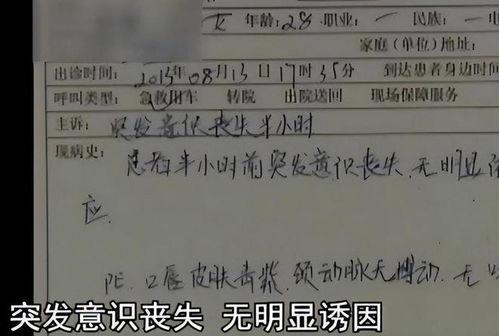 女 年龄:28 职业: 一 民族: 一
家庭(单位)地址:
出诊时间: 2013年08月13日17时35分 到达患者身边时间
呼叫类型: 急救用车 转院 出院送回 现场保障服务
主诉: 突发意识丧失半小时
现病史: 患者半小时前突发意识丧失,无明显
应.
PE: 口唇皮肤青紫,颈动脉无搏动,无
突发意识丧失 无明显诱因